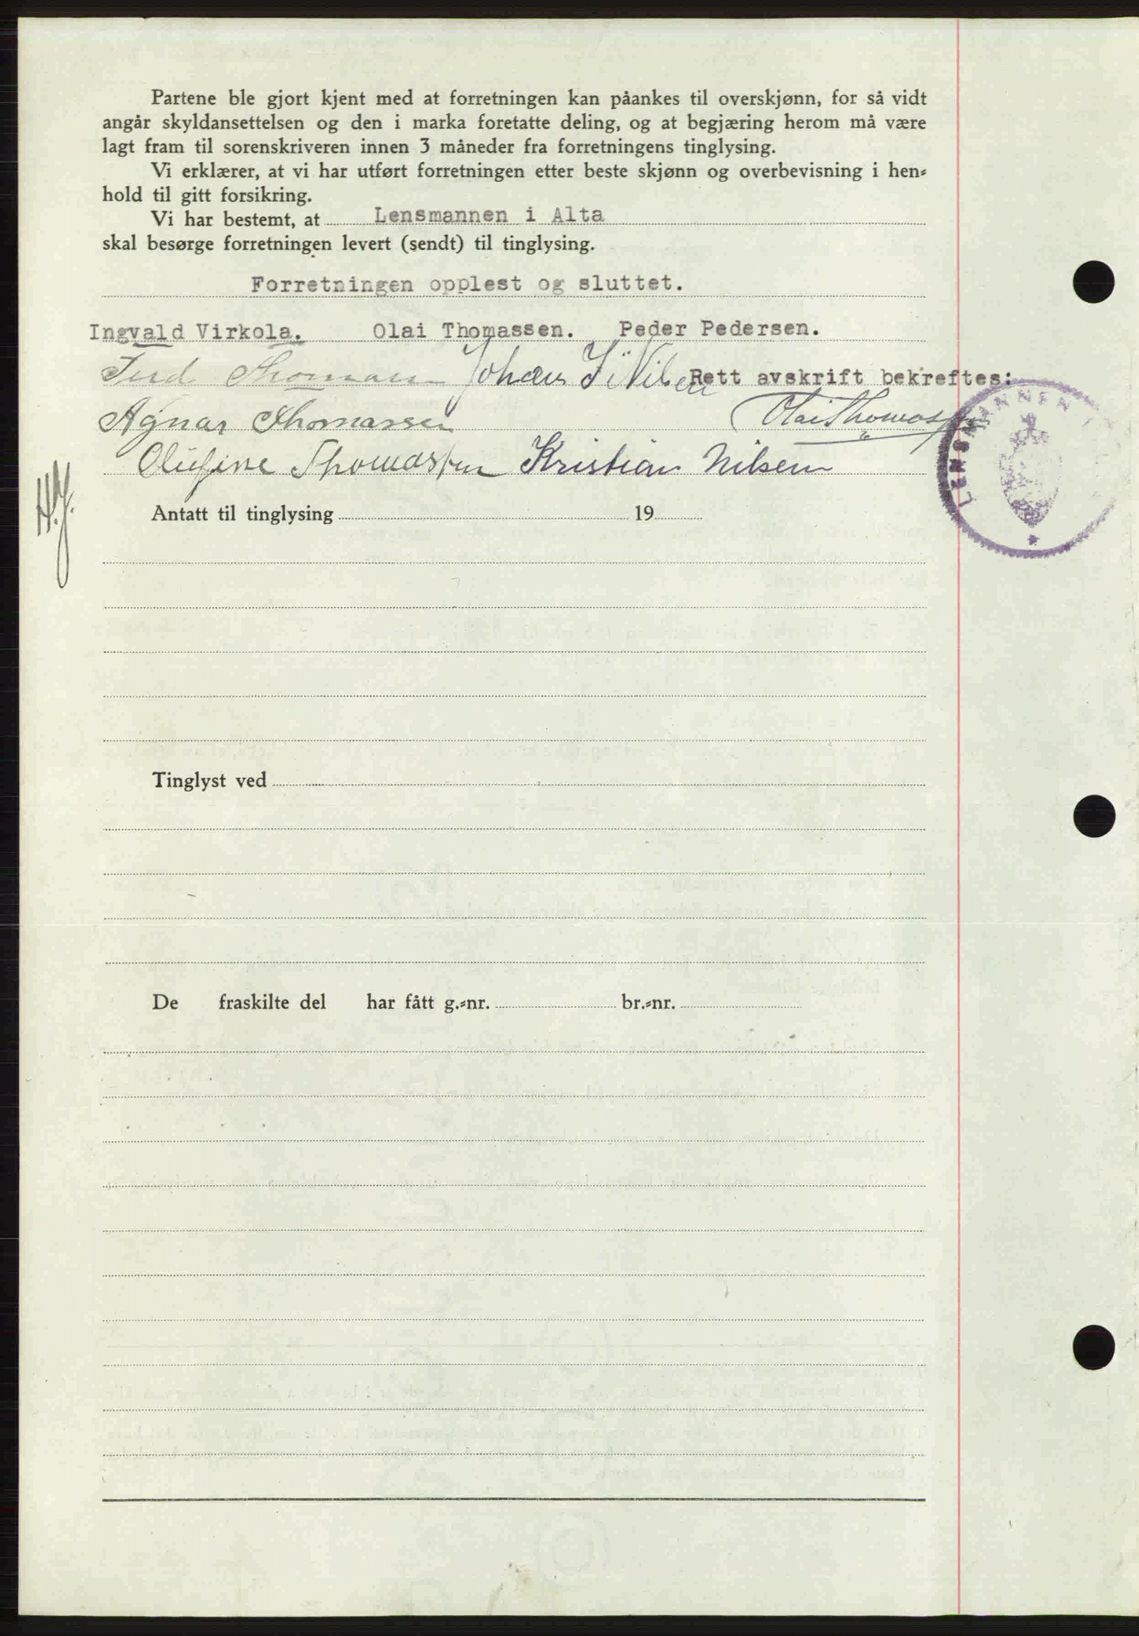 Partene ble gjort kjent med at forretningen kan påankes til overskjønn, for så vidt
angår skyldansettelsen og den i marka foretatte deling, og at begjæring herom må være
lagt fram til sorenskriveren innen 3 måneder fra forretningens tinglysing.
Vi erklærer, at vi har utført forretningen etter beste skjønn og overbevisning i hen-
hold til gitt forsikring.
Vi har bestemt, at Lensmannen i Alta
skal besørge forretningen levert (sendt) til tinglysing.
Forretningen opplest og sluttet.
Ingvald Virkola. Olai Thomassen. Peder Pedersen.
Johan Nilsen Rett avskrift bekreftes:
Agnar Thomassen Olai Thomassen
Olufine Thomassen Kristian Nilsen
LENSMANNEN I
H.J.
Antatt til tinglysing 19
Tinglyst ved
De fraskilte del har fått g.-nr. br.-nr.